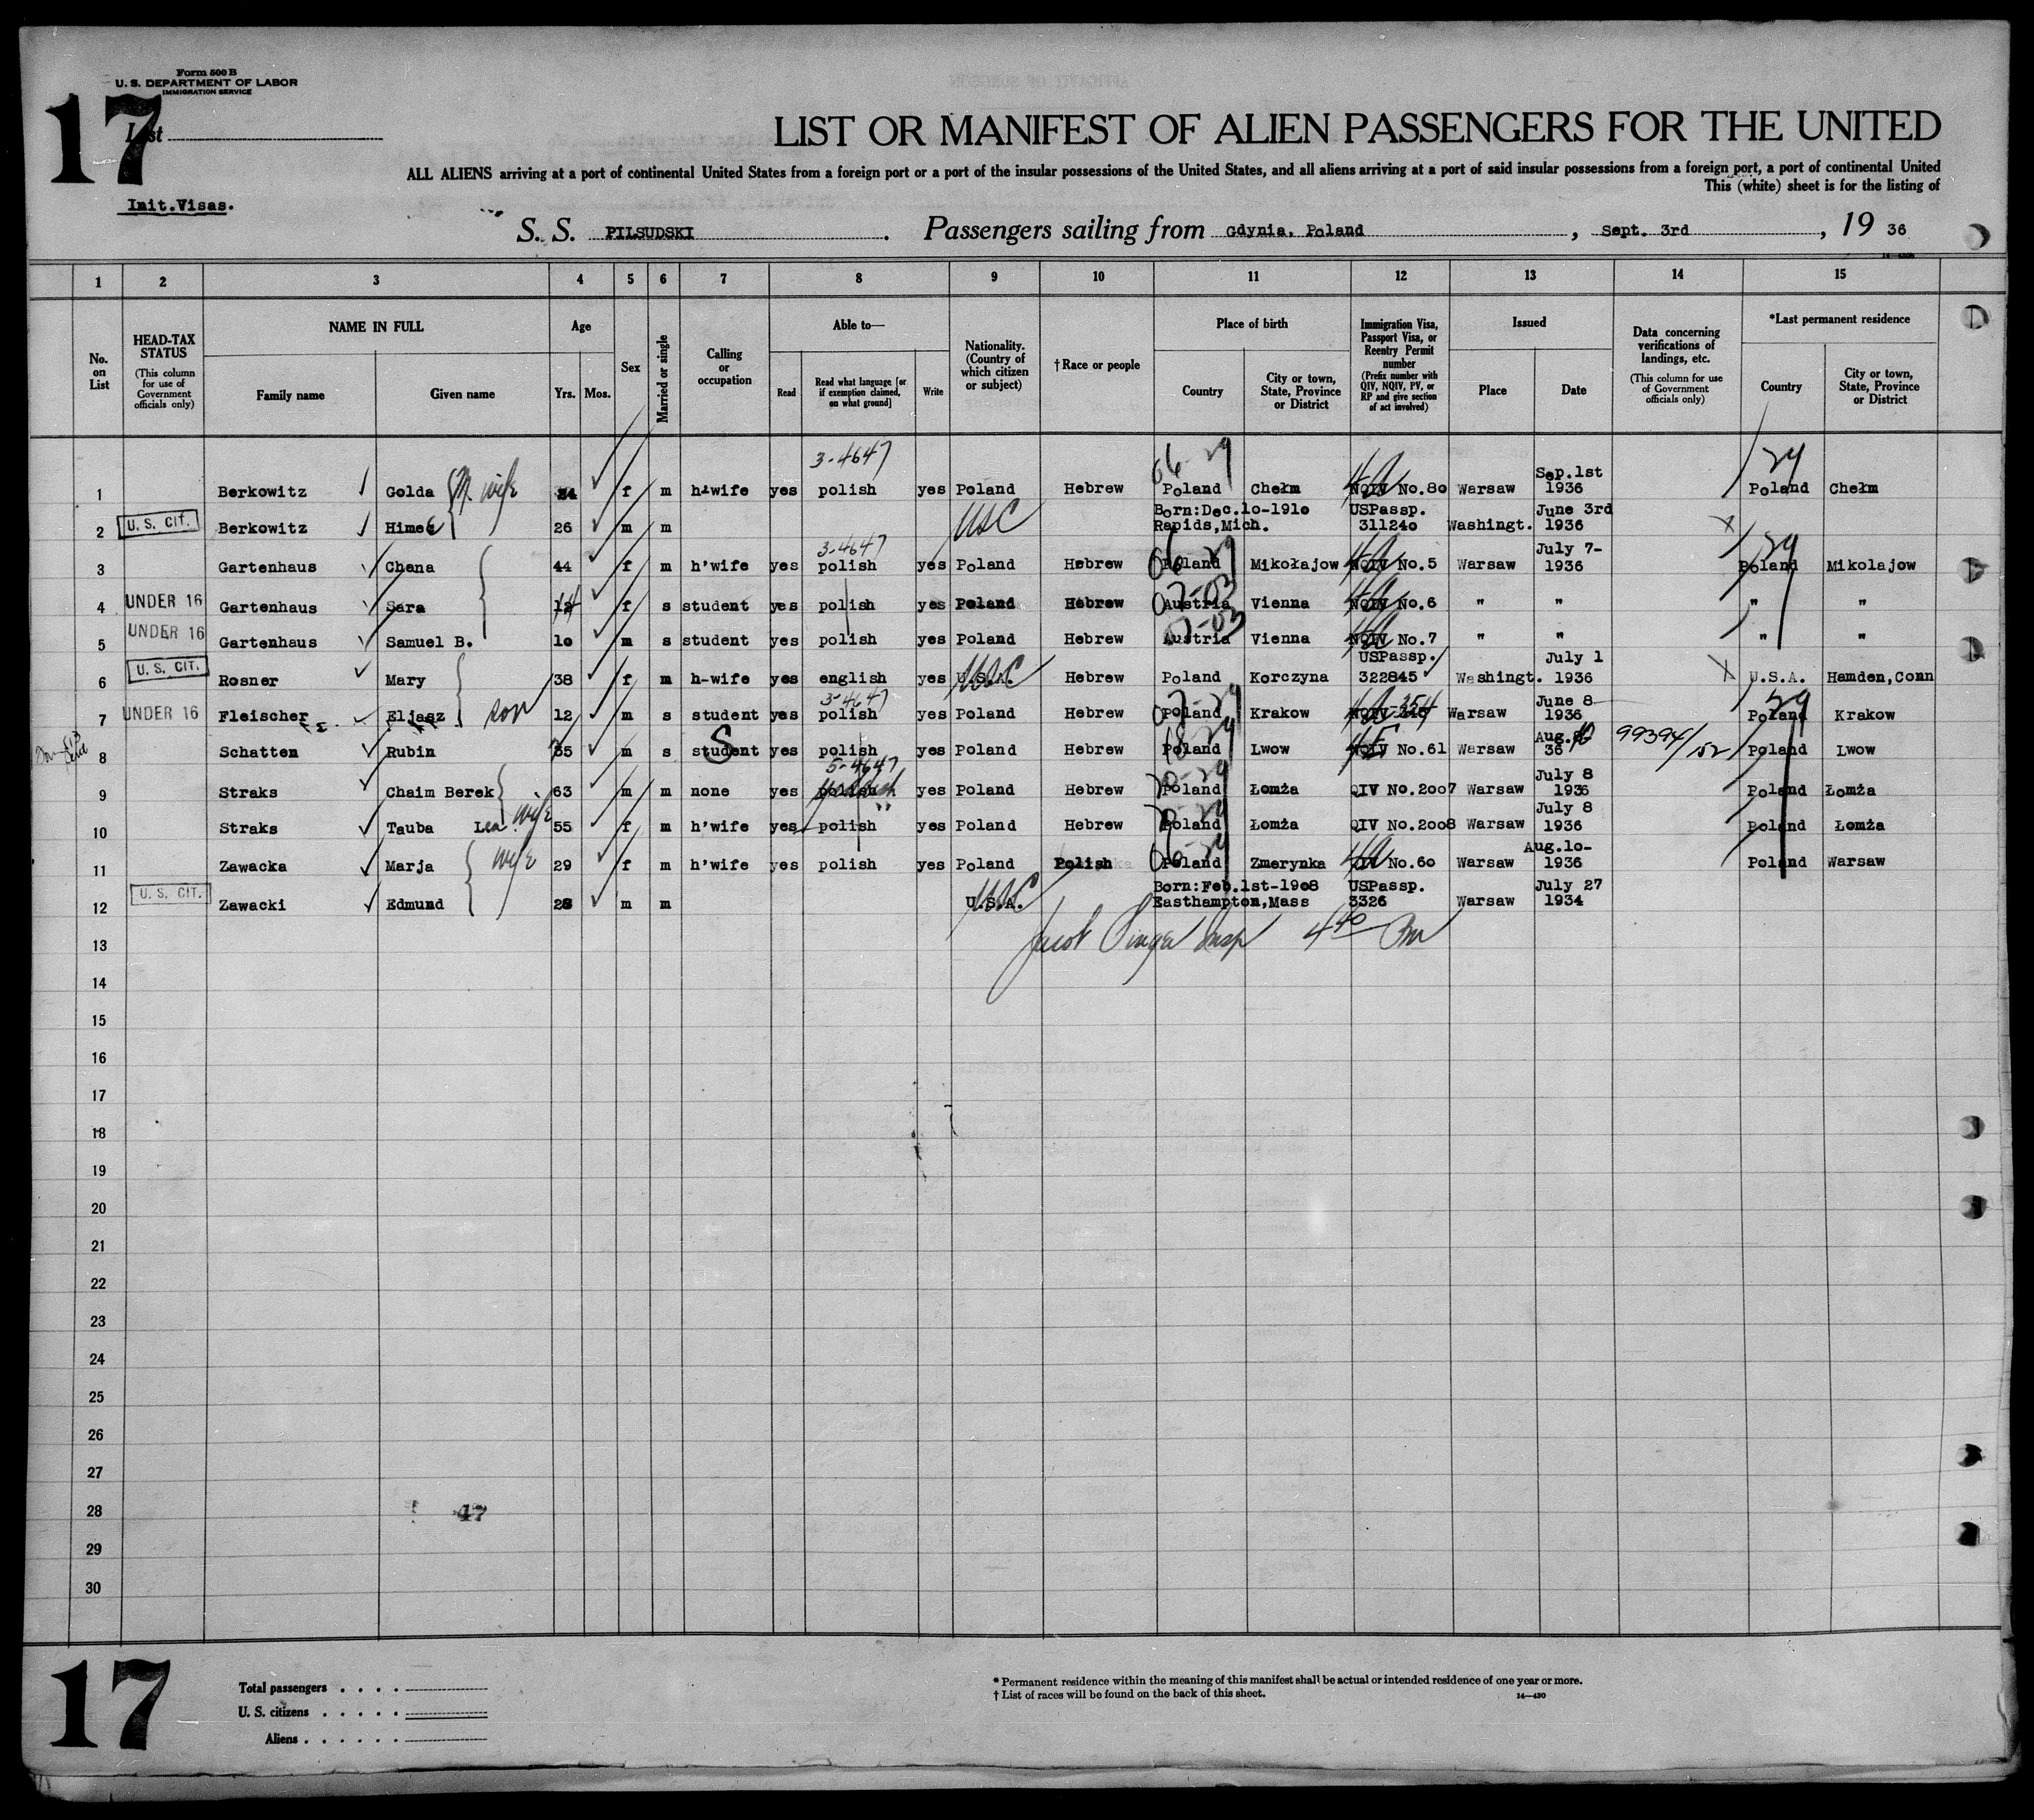 Form 500 B
U. S. DEPARTMENT OF LABOR
IMMIGRATION SERVICE
17
List
Init.Visas.
LIST OR MANIFEST OF ALIEN PASSENGERS FOR THE UNITED
ALL ALIENS arriving at a port of continental United States from a foreign port or a port of the insular possessions of the United States, and all aliens arriving at a port of said insular possessions from a foreign port, a port of continental United
This (white) sheet is for the listing of
S. S. PILSUDSKI. Passengers sailing from Gdynia, Poland, Sept. 3rd, 19 36
1 2 3 4 5 6 7 8 9 10 11 12 13 14 15
No. on List
HEAD-TAX STATUS (This column for use of Government officials only)
NAME IN FULL
Family name Given name
Age
Yrs. Mos.
Sex
Married or single
Calling or occupation
Able to—
Read Read what language [or if exemption claimed, on what ground] Write
Nationality. (Country of which citizen or subject)
†Race or people
Place of birth
Country City or town, State, Province or District
Immigration Visa, Passport Visa, or Reentry Permit number (Prefix number with QIV, NQIV, PV, or RP and give section of act involved)
Issued
Place Date
Data concerning verifications of landings, etc. (This column for use of Government officials only)
*Last permanent residence
Country City or town, State, Province or District
3-4647 06-29 29
1 Berkowitz Golda M. wife f m h-wife yes polish yes Poland Hebrew Poland Chełm NQIV No.80 Warsaw Sep.1st 1936 Poland Chełm
2 U. S. CIT. Berkowitz Himec 26 m m USC Born:Dec.10-1910 Rapids,Mich. USPassp. 311240 Washingt. June 3rd 1936 X
3-4647 29
3 Gartenhaus Chana 44 f m h'wife yes polish yes Poland Hebrew Poland Mikołajow NQIV No.5 Warsaw July 7- 1936 Poland Mikolajow
4 UNDER 16 Gartenhaus Sara 14 f s student yes polish yes Poland Hebrew 07-03 Austria Vienna NQIV No.6 " " " "
5 UNDER 16 Gartenhaus Samuel B. 10 m s student yes polish yes Poland Hebrew 07-03 Austria Vienna NQIV No.7 " " " "
6 U. S. CIT. Rosner Mary 38 f m h-wife yes english yes U.S.A. USC Hebrew Poland Korczyna USPassp. 322845 Washingt. July 1 1936 X U.S.A. Hamden,Conn
3-4647 29
7 UNDER 16 Fleischer Eljasz son 12 m s student yes polish yes Poland Hebrew Poland Krakow 354 Warsaw June 8 1936 Poland Krakow
8 Schatten Rubin 35 m s student S yes polish yes Poland Hebrew Poland Lwow NQIV No.61 Warsaw Aug. 36 99394/152 Poland Lwow
5-4647
9 Straks Chaim Berek 63 m m none yes yes Poland Hebrew Poland Łomża QIV No.2007 Warsaw July 8 1936 Poland Łomża
10 Straks Tauba Lea wife 55 f m h'wife yes polish yes Poland Hebrew Poland Łomża QIV No.2008 Warsaw July 8 1936 Poland Łomża
11 Zawacka Marja wife 29 f m h'wife yes polish yes Poland Polish Poland Zmerynka No.60 Warsaw Aug.10- 1936 Poland Warsaw
12 U. S. CIT. Zawacki Edmund 28 m m U.S.A. USC Born:Feb.1st-1908 Easthampton,Mass USPassp. 3326 Warsaw July 27 1934
13 Jacob Insp 4 40 Pm
14
15
16
17
18
19
20
21
22
23
24
25
26
27
28 47
29
30
17
Total passengers
U. S. citizens
Aliens
* Permanent residence within the meaning of this manifest shall be actual or intended residence of one year or more.
† List of races will be found on the back of this sheet. 14—430